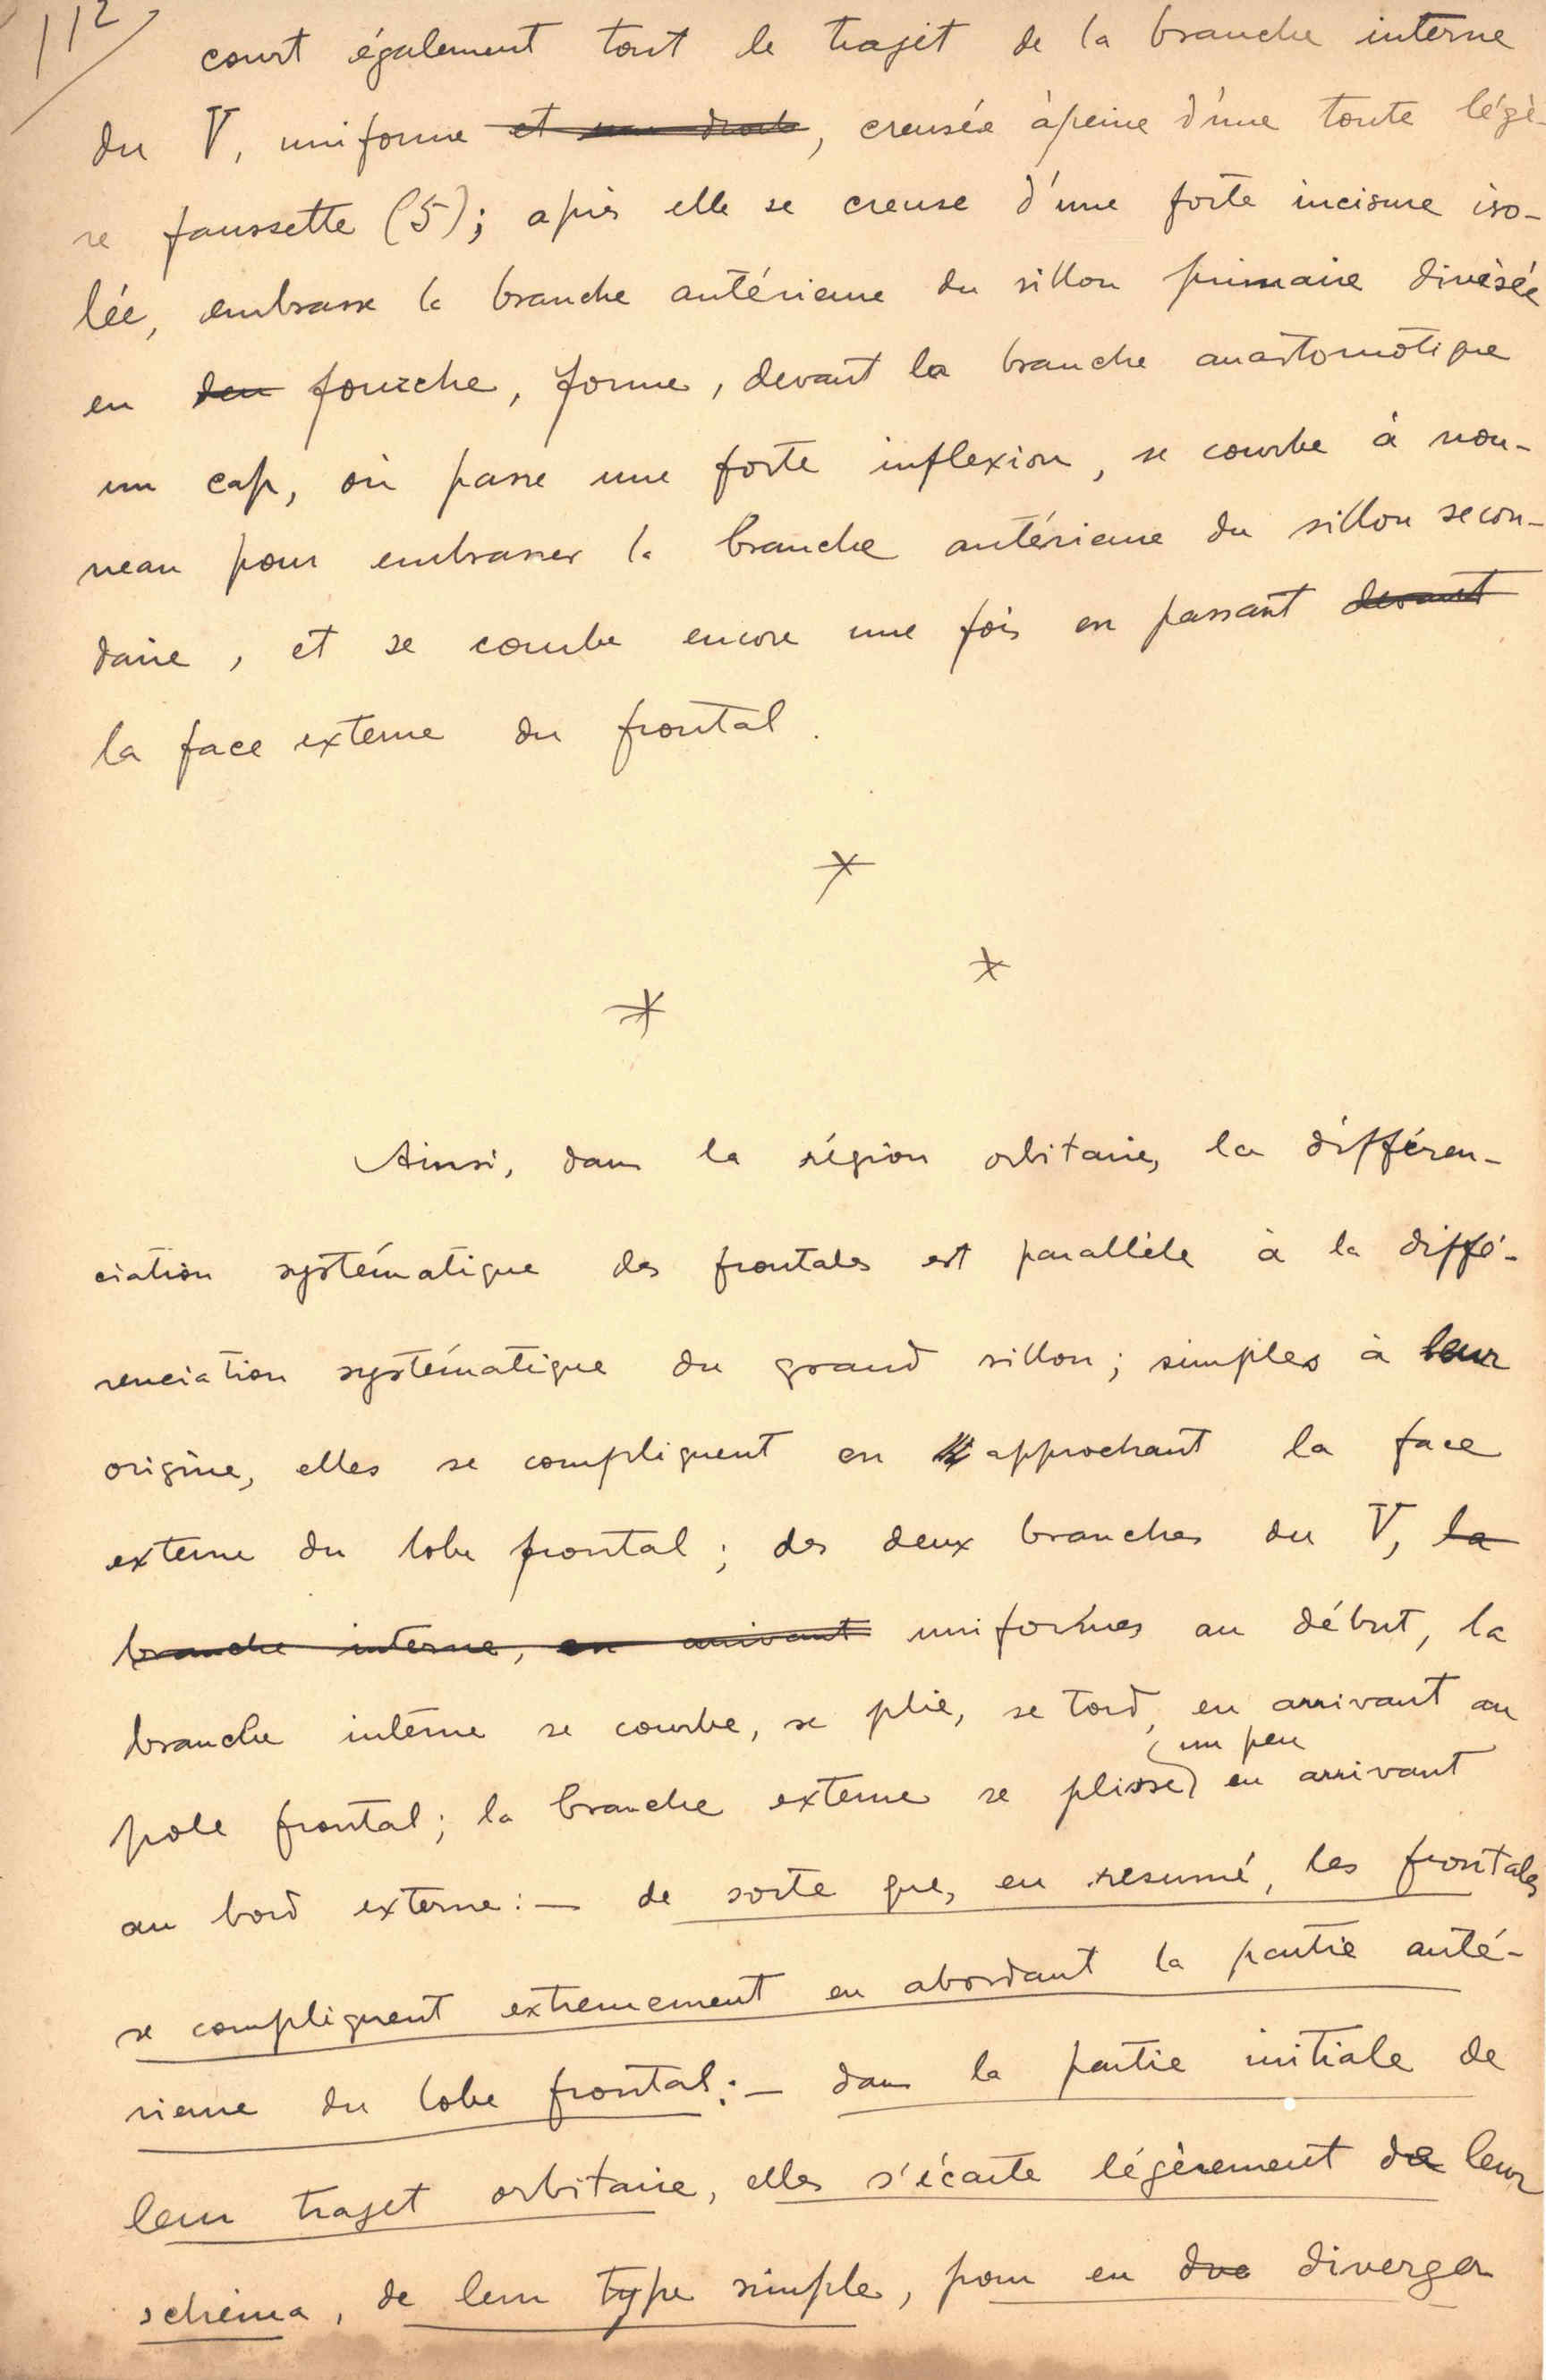 112
court également tout le trajet de la branche interne
du V, uniforme et une droite, creusée àpeine d'une toute légè-
re faussette (5); après elle se creuse d'une forte incisure iso-
lée, embrasse la branche antérieure du sillon primaire divisée
en deu fourche, forme, devant la branche anastomotique
un cap, où passe une forte inflexion, se courbe à nou-
veau pour embrasser la branche antérieure du sillon secon-
daire, et se courbe encore une fois en passant devant
la face externe du frontal.
*
*
*
Ainsi, dans la région orbitaire, la différen-
ciation systématique des frontales est parallèle à la diffé-
renciation systématique du grand sillon; simples à leur
origine, elles se compliquent en approchant la face
externe du lobe frontal; des deux branches du V, la
branche interne, en arrivant uniformes au début, la
branche interne se courbe, se plie, se tord, en arrivant au
un peu
pole frontal; la branche externe se plisse en arrivant
au bord externe:— de sorte que, en resumé, les frontales
se compliquent extremement en abordant la partie anté-
rieure du lobe frontal:— dans la partie initiale de
leur trajet orbitaire, elles s'écarte légèrement de leur
schéma, de leur type simple, pour en dve diverger